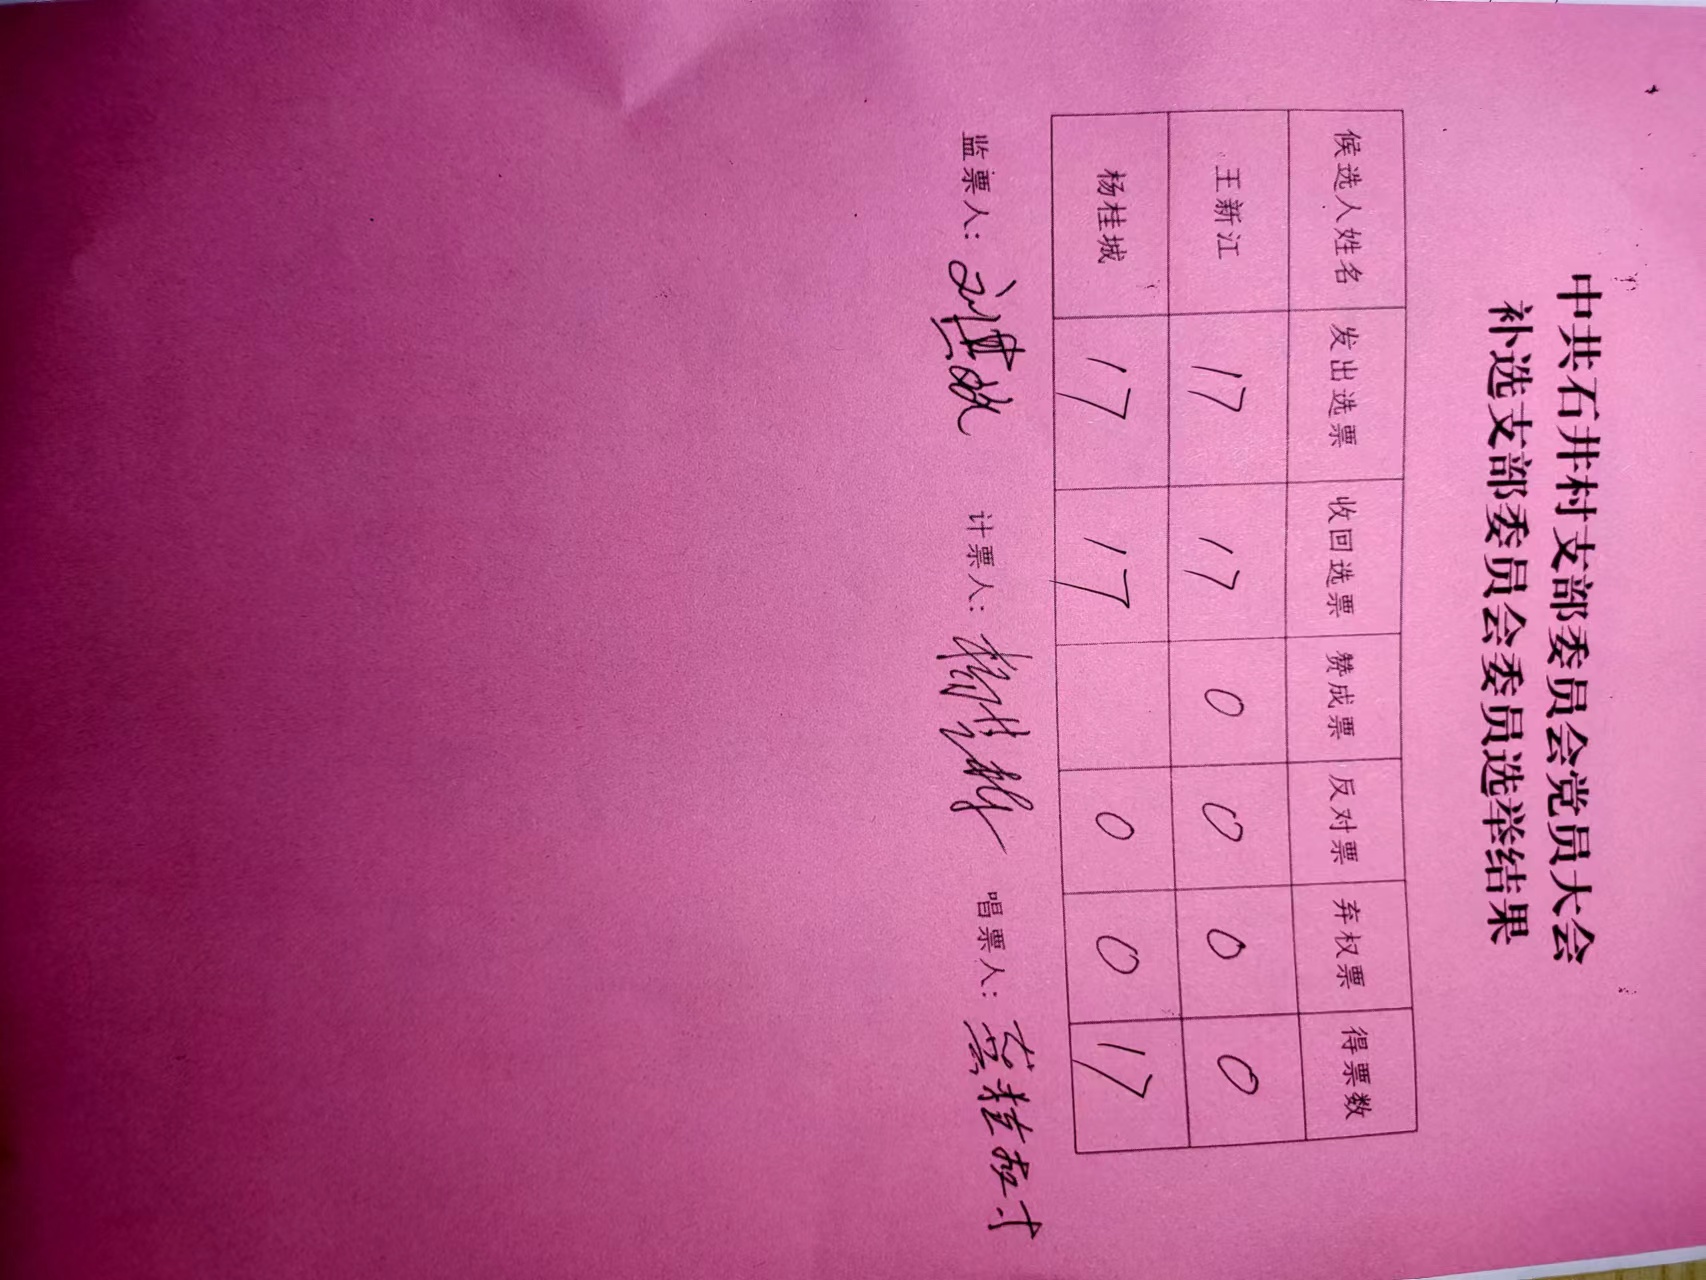 中共石井村支部委员会党员大会
补选支部委员会委员选举结果
候选人姓名 发出选票 收回选票 赞成票 反对票 弃权票 得票数
王新江 17 17 0 0 0 0
杨桂城 17 17 0 0 17
监票人: 计票人: 唱票人: 黄桂树